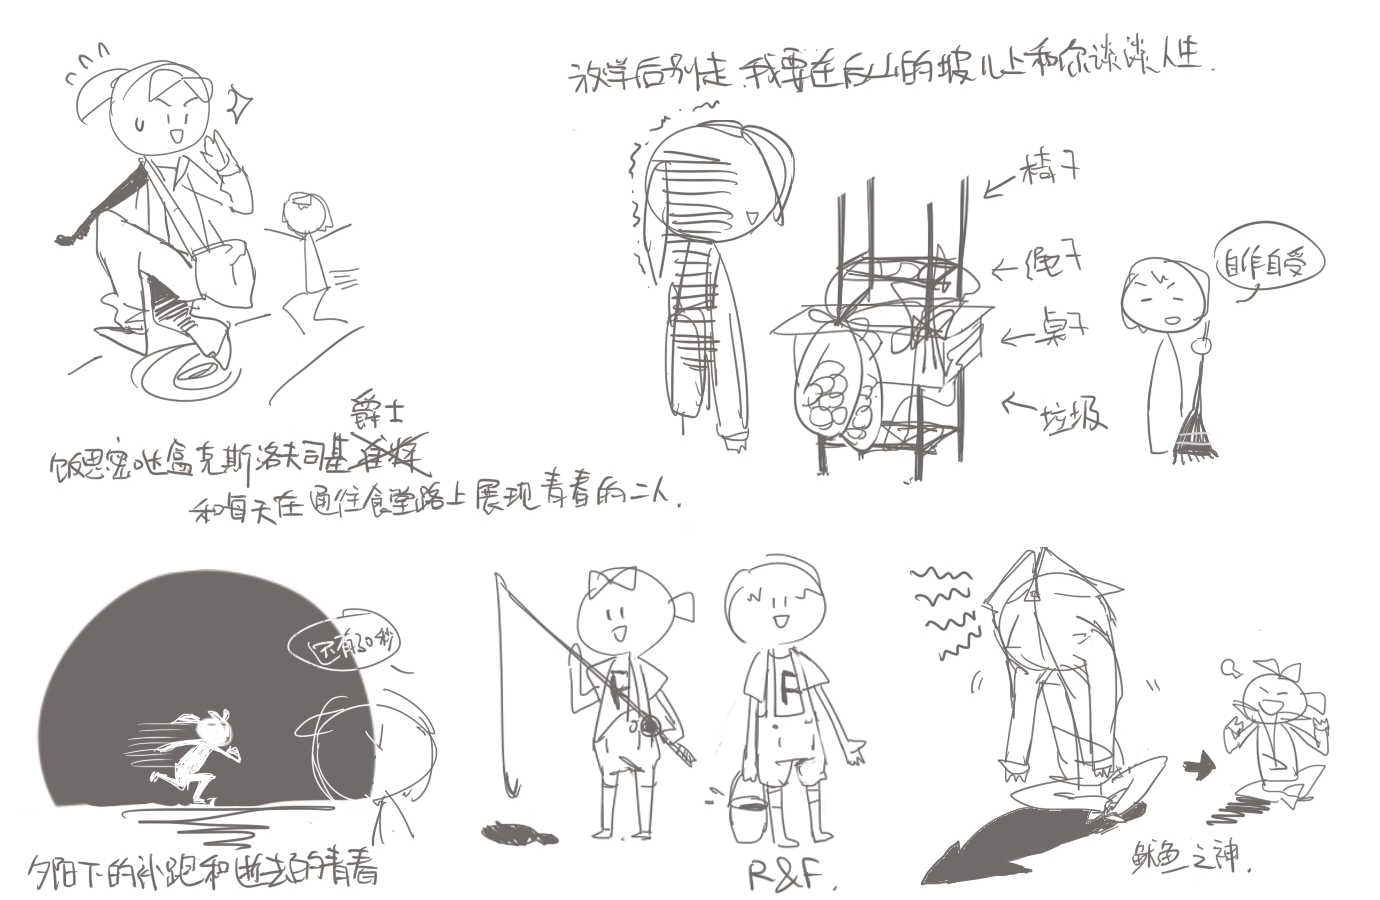 放学后别走 我要在后山的坡儿上和你谈谈人生.
椅子
绳子
桌子
垃圾
自作自受
爵士
饭思密哒盒克斯洛夫司基准将
和每天在通往食堂路上展现青春的二人.
还有30秒
夕阳下的补跑和逝去的青春
F
F
R&F.
鱿鱼之神.